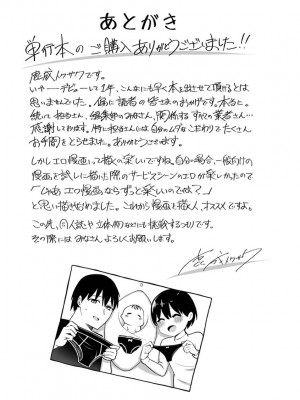 あとがき
単行本のご購入ありがとうございました!!
いやーデビューして1年、こんなにも早く本を出させて頂けるとは
思いませんでした。偏に読者の皆さまのおかげです。本当に。
続いて担当さん、編集部のみなさん、関係するすべての業者さん…
感謝しております。特に担当さんには自分のムダなこだわりでたくさん
お手間をとらせました。ありがとうございます。
しかしエロ漫画って描くの楽しいですね。自分の場合、一般向け
の漫画で試しに描いた際のサービスシーンのエロが楽しかったので
「ムムム エロ漫画ならずっと楽しいのでは?」
と思い描きはじめました。これから漫画を描く人、オススメですよ。
この先、同人誌や立体物などにも挑戦するつもりです。
その際にはみなさん、よろしくお願いします。